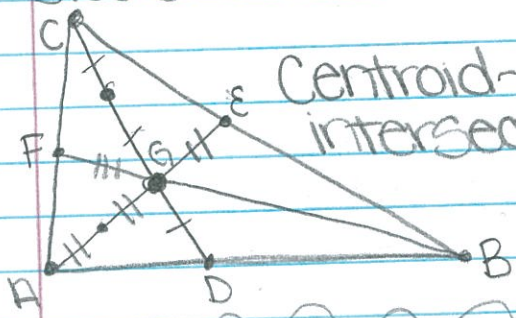 C
E
Centroid-
intersec
F
G
A
D
B